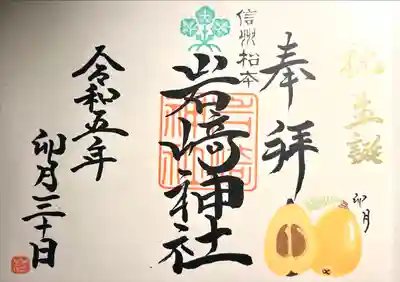 祝生誕
奉拝
卯月
信州松本
岩﨑神社
令和五年
卯月三十日